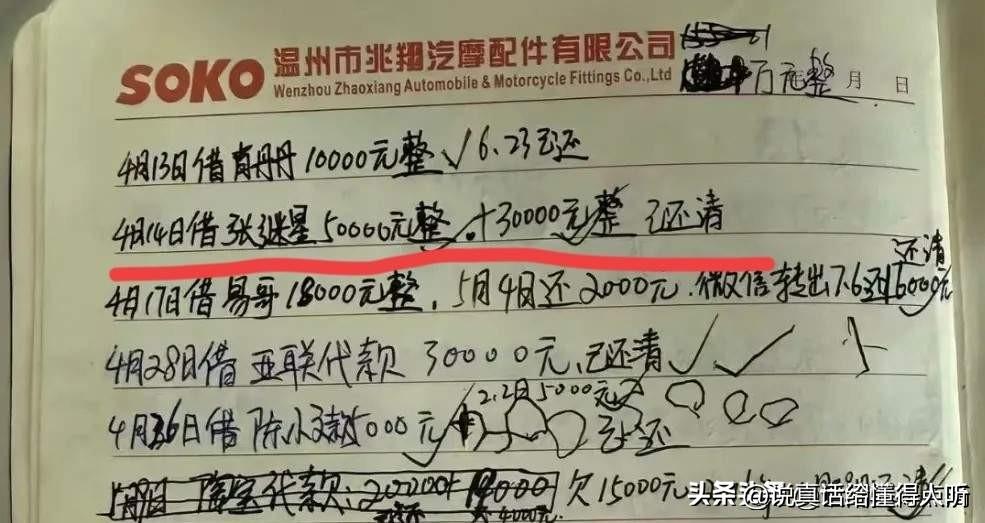 SOKO 温州市兆翔汽摩配件有限公司
Wenzhou Zhaoxiang Automobile & Motorcycle Fittings Co.,Ltd
万元整 月 日
4月13日借肖丹丹10000元整√6.23已还
4月14日借张继星50000元整.+30000元整 已还清
还清
4月17日借易哥18000元整.5月4日还2000元.微信转出7.6还16000元
4月28日借亚联代款30000元,已还清√√
2.2月5000元
4月36日借陈小 款5000元 已还
淘宝代款: 欠15000元
还 4000元
头条 @说真话给懂得人听